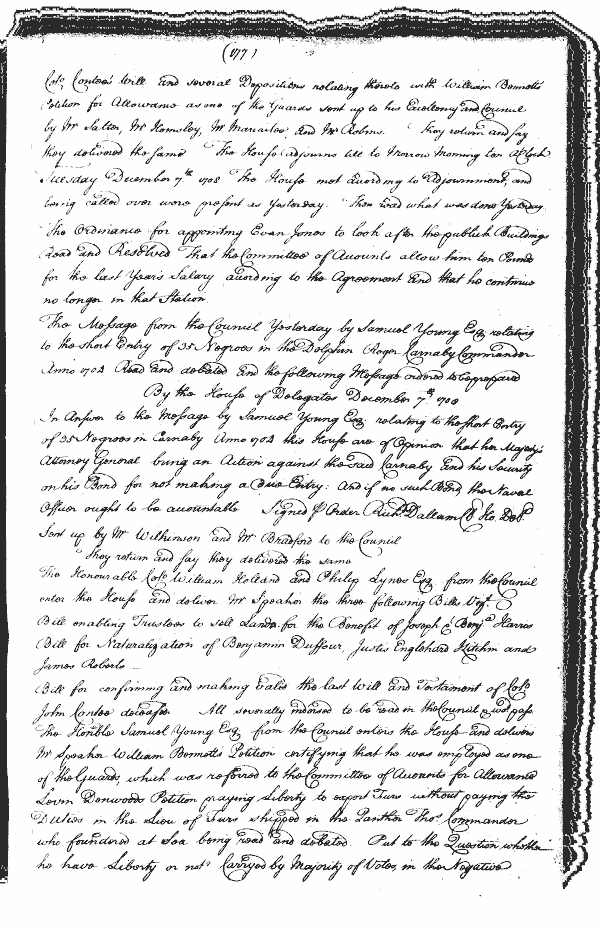 (177)
Col°. Contee's Will and several Depositions relating thereto with William Bennetts
Petition for Allowance as one of the Guards sent up to his Excellency and Council
by Mr Salter, Mr Hemsley, Mr Macartee, and Mr Robins. They return and say
they delivered the same The House adjourns till to Morrow Morning ten a Clock
Tuesday December 7th. 1708 The House met according to Adjournment, and
being called over were present as Yesterday. Then read what was done Yesterday.
The Ordinance for appointing Evan Jones to look after the publick Buildings
Read and Resolved That the Committee of Accounts allow him ten Pounds
for the last Year's Salary according to the Agreement and that he continue
no longer in that Station
The Message from the Council Yesterday by Samuel Young Esq relating
to the short Entry of 35 Negroes in the Dolphin Roger Carnaby Commander
Anno 1704 Read and debated and the following Message ordered to be prepared
By the House of Delegates December 7th. 1708
In Answer to the Message by Samuel Young Esq. relating to the short Entry
of 35 Negroes in Carnaby Anno 1704 this House are of Opinion that her Majesty's
Attorney General bring an Action against the said Carnaby and his Security
on his Bond for not making a due Entry: And if no such Bond, the Naval
Officer ought to be accountable Signed p Order Richd. Dallam Cl Ho. Del.
Sent up by Mr Wilkinson and Mr Bradford to the Council
They return and say they delivered the same
The Honourable Col°. William Holland and Philip Lynes Esq. from the Council
enter the House and deliver Mr Speaker the three following Bills Vizt.
Bill enabling Trustees to sell Lands for the Benefit of Joseph & Benja Harris
Bill for Naturalization of Benjamin Duffour, Justis Englehard Kitchin and
James Roberts
Bill for confirming and making valid the last Will and Testament of Col°.
John Contee deceased. All severally indorsed to be read in the Council & will pass
The Honble Samuel Young Esq from the Council enters the House and delivers
Mr Speaker William Bennetts Petition certifying that he was employed as one
of the Guards, which was referred to the Committee of Accounts for Allowance
Levin Denwoods Petition praying Liberty to export Furs without paying the
Duties in the Lieu of Furs shipped in the Panther Thos. Commander
who foundered at Sea being read and debated. Put to the Question whether
he have Liberty or not? Carryed by Majority of Votes, in the Negative